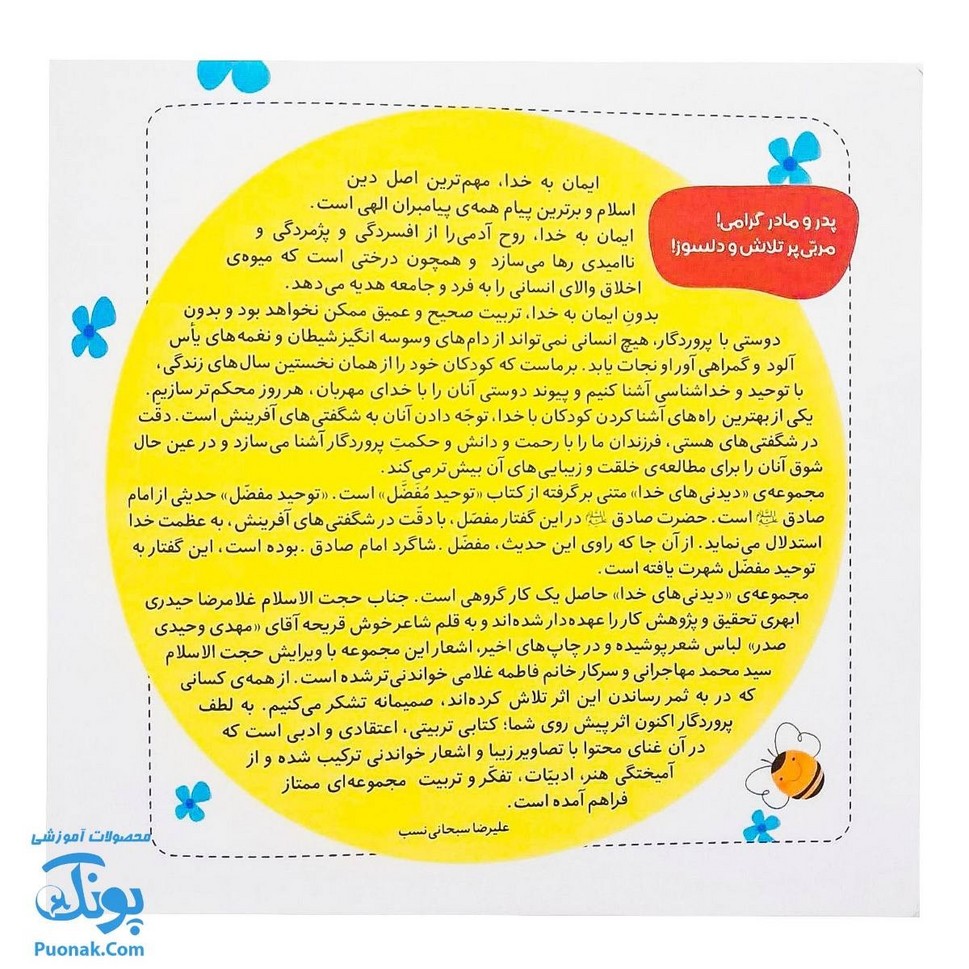 پدر و مادر گرامی!
مربّی پر تلاش و دلسوز!
ایمان به خدا، مهم‌ترین اصل دین
اسلام و برترین پیام همه‌ی پیامبران الهی است.
ایمان به خدا، روح آدمی‌را از افسردگی و پژمردگی و
ناامیدی رها می‌سازد و همچون درختی است که میوه‌ی
اخلاق والای انسانی را به فرد و جامعه هدیه می‌دهد.
بدونِ ایمان به خدا، تربیت صحیح و عمیق ممکن نخواهد بود و بدون
دوستی با پروردگار، هیچ انسانی نمی‌تواند از دام‌های وسوسه انگیز شیطان و نغمه‌های یأس
آلود و گمراهی آور او نجات یابد. بر ماست که کودکان خود را از همان نخستین سال‌های زندگی،
با توحید و خداشناسی آشنا کنیم و پیوند دوستی آنان را با خدای مهربان، هر روز محکم‌تر سازیم.
یکی از بهترین راه‌های آشنا کردن کودکان با خدا، توجّه دادن آنان به شگفتی‌های آفرینش است. دقّت
در شگفتی‌های هستی، فرزندان ما را با رحمت و دانش و حکمتِ پروردگار آشنا می‌سازد و در عین حال
شوق آنان را برای مطالعه‌ی خلقت و زیبایی‌های آن بیش‌تر می‌کند.
مجموعه‌ی «دیدنی‌های خدا» متنی برگرفته از کتاب «توحید مُفَضَّل» است. «توحید مفضّل» حدیثی از امام
صادق است. حضرت صادق در این گفتار مفصّل، با دقّت در شگفتی‌های آفرینش، به عظمت خدا
استدلال می‌نماید. از آن جا که راوی این حدیث، مفضّل .شاگرد امام صادق .بوده است، این گفتار به
توحید مفضّل شهرت یافته است.
مجموعه‌ی «دیدنی‌های خدا» حاصل یک کار گروهی است. جناب حجت الاسلام غلامرضا حیدری
ابهری تحقیق و پژوهش کار را عهده‌دار شده‌اند و به قلم شاعر خوش قریحه آقای «مهدی وحیدی
صدر» لباس شعر پوشیده و در چاپ‌های اخیر، اشعار این مجموعه با ویرایش حجت الاسلام
سید محمد مهاجرانی و سرکار خانم فاطمه غلامی خواندنی‌تر شده است. از همه‌ی کسانی
که در به ثمر رساندن این اثر تلاش کرده‌اند، صمیمانه تشکر می‌کنیم. به لطف
پروردگار اکنون اثر پیش روی شما؛ کتابی تربیتی، اعتقادی و ادبی است که
در آن غنای محتوا با تصاویر زیبا و اشعار خواندنی ترکیب شده و از
آمیختگی هنر، ادبیّات، تفکّر و تربیت مجموعه‌ای ممتاز
فراهم آمده است.
علیرضا سبحانی نسب
محصولات آموزشی
پونک
Puonak.Com